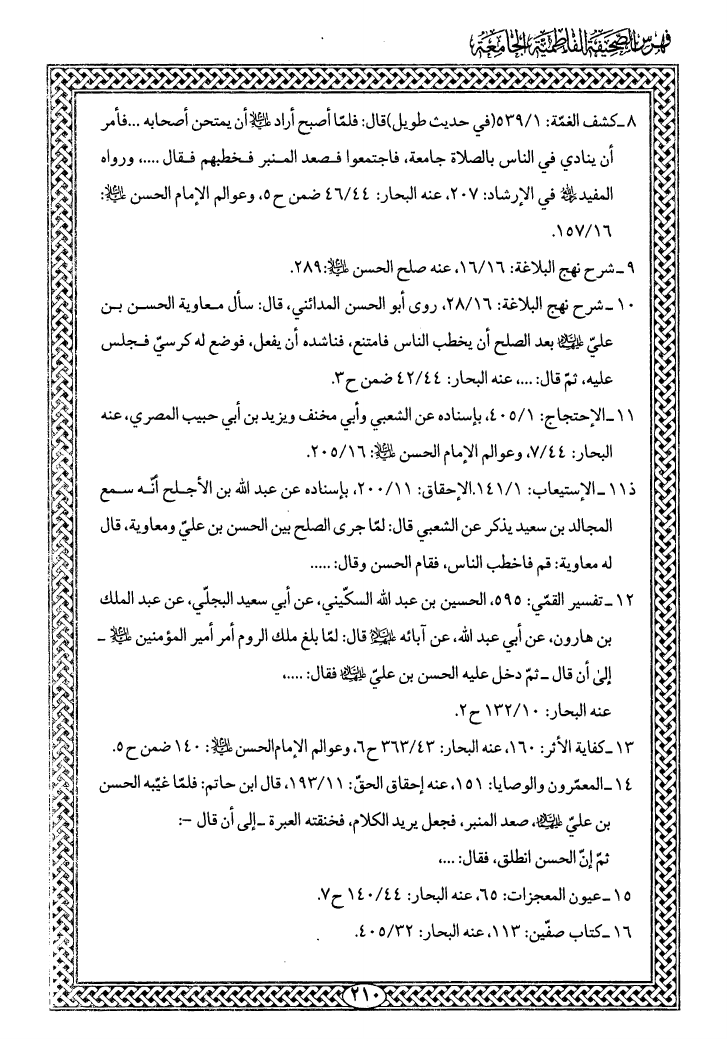 فهرس الصحيفة الفاطمية الجامعة
٨ـ كشف الغمّة: ٥٣٩/١(في حديث طويل)قال: فلمّا أصبح أراد عليه السلام أن يمتحن أصحابه ...فأمر
أن ينادي في الناس بالصلاة جامعة، فاجتمعوا فـصعد المـنبر فـخطبهم فـقال ....، ورواه
المفيد رحمه الله في الإرشاد: ٢٠٧، عنه البحار: ٤٦/٤٤ ضمن ح٥، وعوالم الإمام الحسن عليه السلام:
١٥٧/١٦.
٩ـ شرح نهج البلاغة: ١٦/١٦، عنه صلح الحسن عليه السلام:٢٨٩.
١٠ـ شرح نهج البلاغة: ٢٨/١٦، روى أبو الحسن المدائني، قال: سأل مـعاوية الحسـن بـن
عليّ عليهما السلام بعد الصلح أن يخطب الناس فامتنع، فناشده أن يفعل، فوضع له كرسيّ فـجلس
عليه، ثمّ قال: ...، عنه البحار: ٤٢/٤٤ ضمن ح٣.
١١ـ الإحتجاج: ٤٠٥/١، بإسناده عن الشعبي وأبي مخنف ويزيد بن أبي حبيب المصري، عنه
البحار: ٧/٤٤، وعوالم الإمام الحسن عليه السلام: ٢٠٥/١٦.
ذ١١ ـ الإستيعاب: ١٤١/١.الإحقاق: ٢٠٠/١١، بإسناده عن عبد الله بن الأجـلح أنّـه سـمع
المجالد بن سعيد يذكر عن الشعبي قال: لمّا جرى الصلح بين الحسن بن عليّ ومعاوية، قال
له معاوية: قم فاخطب الناس، فقام الحسن وقال: .....
١٢ـ تفسير القمّي: ٥٩٥، الحسين بن عبد الله السكّيني، عن أبي سعيد البجلّي، عن عبد الملك
بن هارون، عن أبي عبد الله، عن آبائه عليهم السلام قال: لمّا بلغ ملك الروم أمر أمير المؤمنين عليه السلام ـ
إلىٰ أن قال ـ ثمّ دخل عليه الحسن بن عليّ عليهما السلام فقال: ....،
عنه البحار: ١٣٢/١٠ ح٢.
١٣ـ كفاية الأثر: ١٦٠، عنه البحار: ٣٦٣/٤٣ ح٦، وعوالم الإمام الحسن عليه السلام: ١٤٠ ضمن ح٥.
١٤ـ المعمّرون والوصايا: ١٥١، عنه إحقاق الحقّ: ١٩٣/١١، قال ابن حاتم: فلمّا غيّبه الحسن
بن عليّ عليهما السلام، صعد المنبر، فجعل يريد الكلام، فخنقته العبرة ـإلى أن قال ـ:
ثمّ إنّ الحسن انطلق، فقال: ...،
١٥ـ عيون المعجزات: ٦٥، عنه البحار: ١٤٠/٤٤ ح٧.
١٦ـ كتاب صفّين: ١١٣، عنه البحار: ٤٠٥/٣٢.
٢١٠